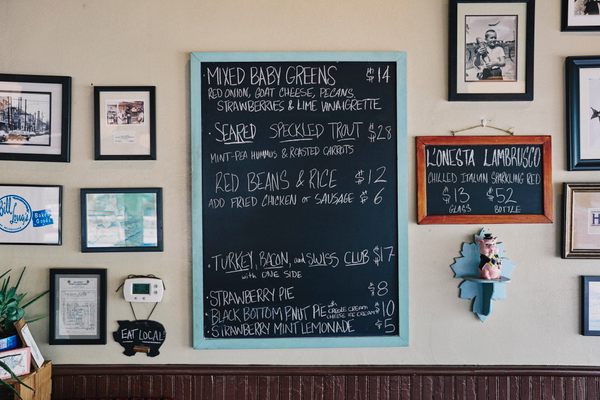 MIXED BABY GREENS $14
RED ONION, GOAT CHEESE, PECANS,
STRAWBERRIES & LIME VINAIGRETTE
SEARED SPECKLED TROUT $28
MINT-PEA HUMMUS & ROASTED CARROTS
RED BEANS & RICE $12
ADD FRIED CHICKEN OR SAUSAGE $6
TURKEY, BACON, AND SWISS CLUB $17
WITH ONE SIDE
STRAWBERRY PIE $8
BLACK BOTTOM P.NUT PIE WITH CREOLE CREAM CHEESE ICE CREAM $10
STRAWBERRY MINT LEMONADE $5
L'ONESTA LAMBRUSCO
CHILLED ITALIAN SPARKLING RED
$13 $52
GLASS BOTTLE
EAT LOCAL
Bill Long's
BAKERY
Goods